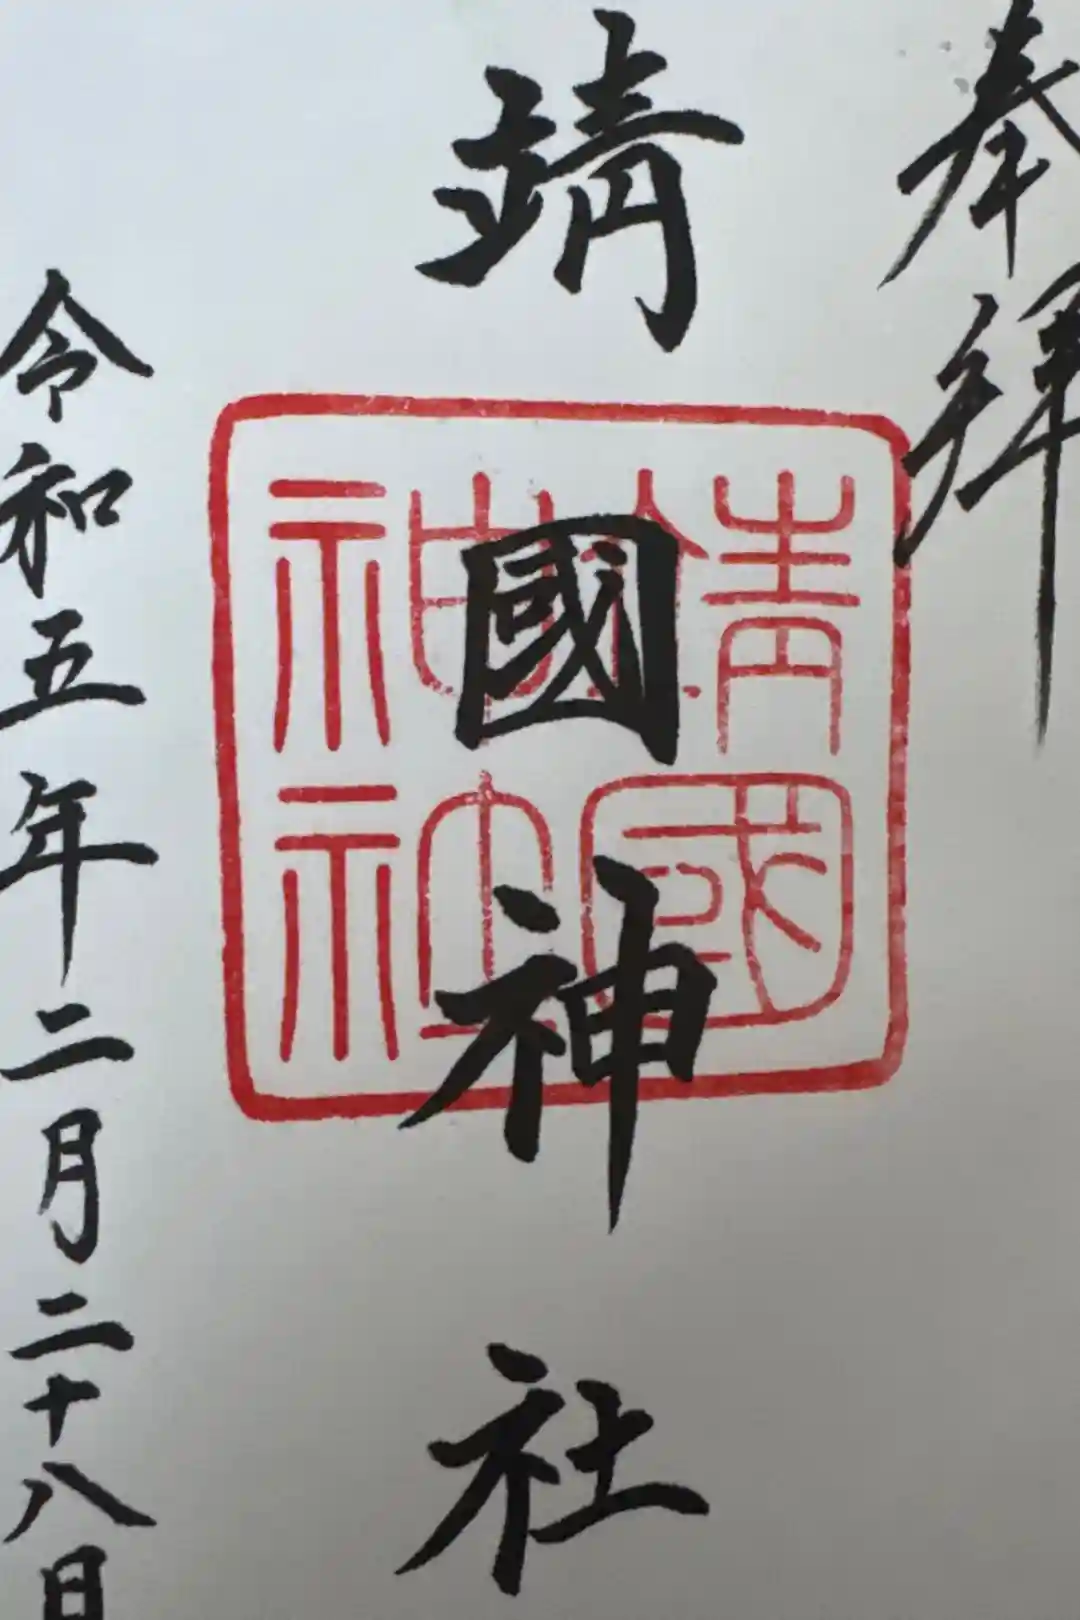 奉拝
靖國神社
靖國
神社
令和五年二月二十八日